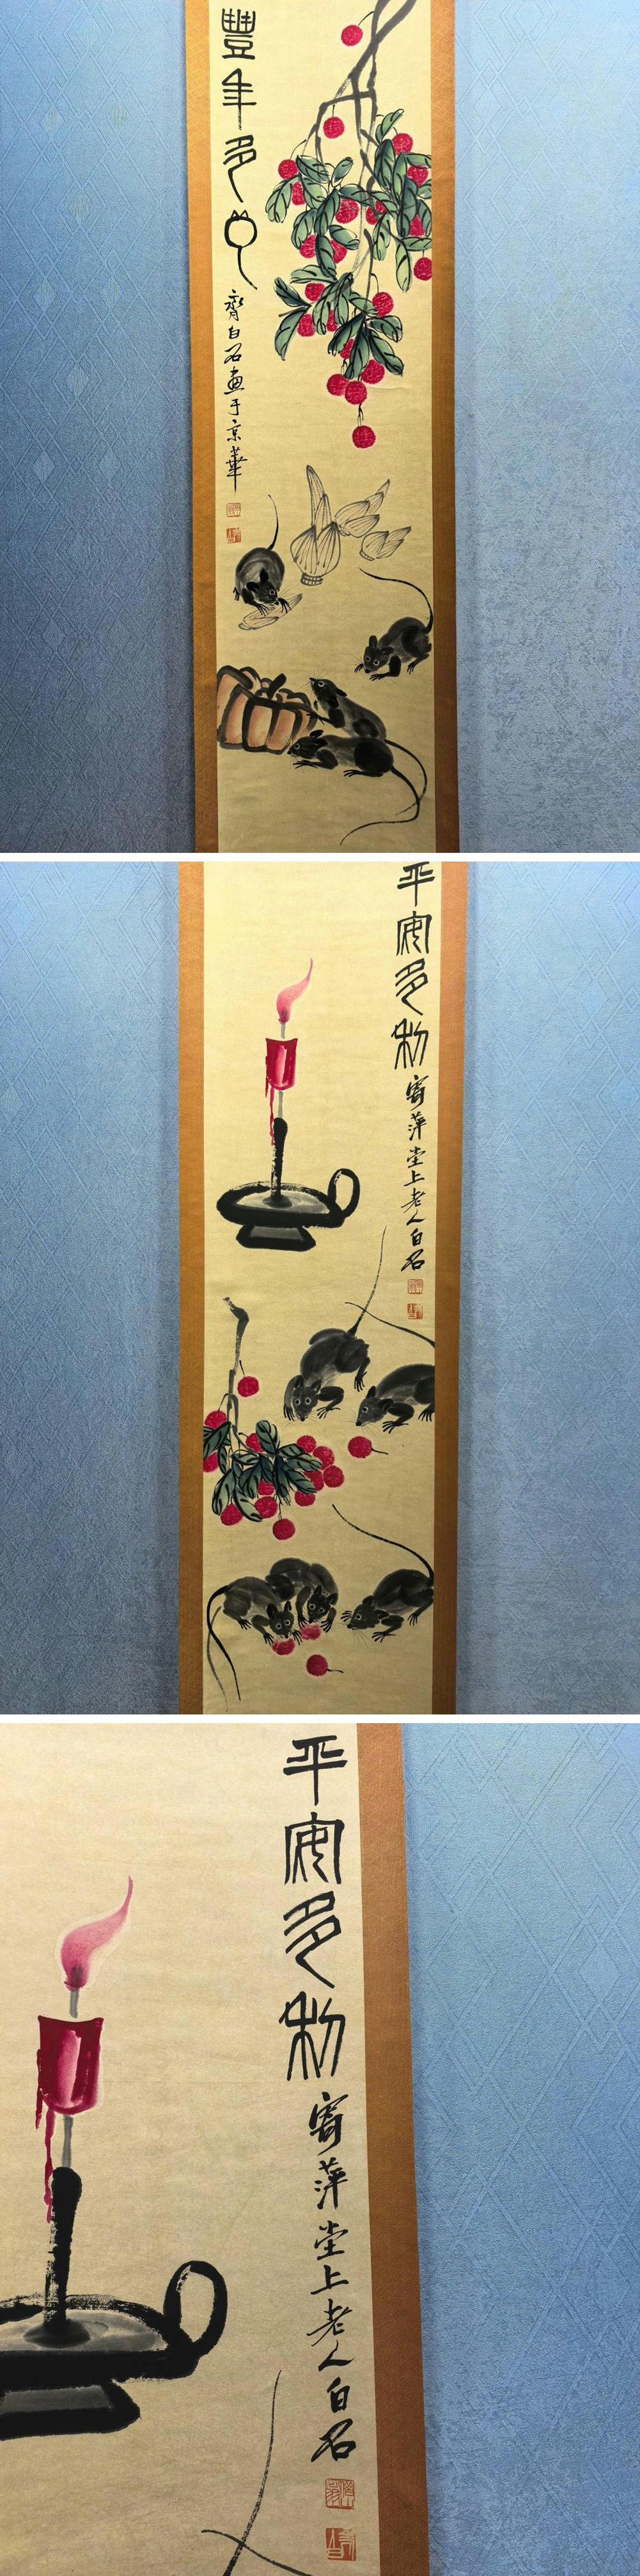 豐年多
齊白石畫于京華
平安多利
寄萍堂上老人白石
平安多利
寄萍堂上老人白石